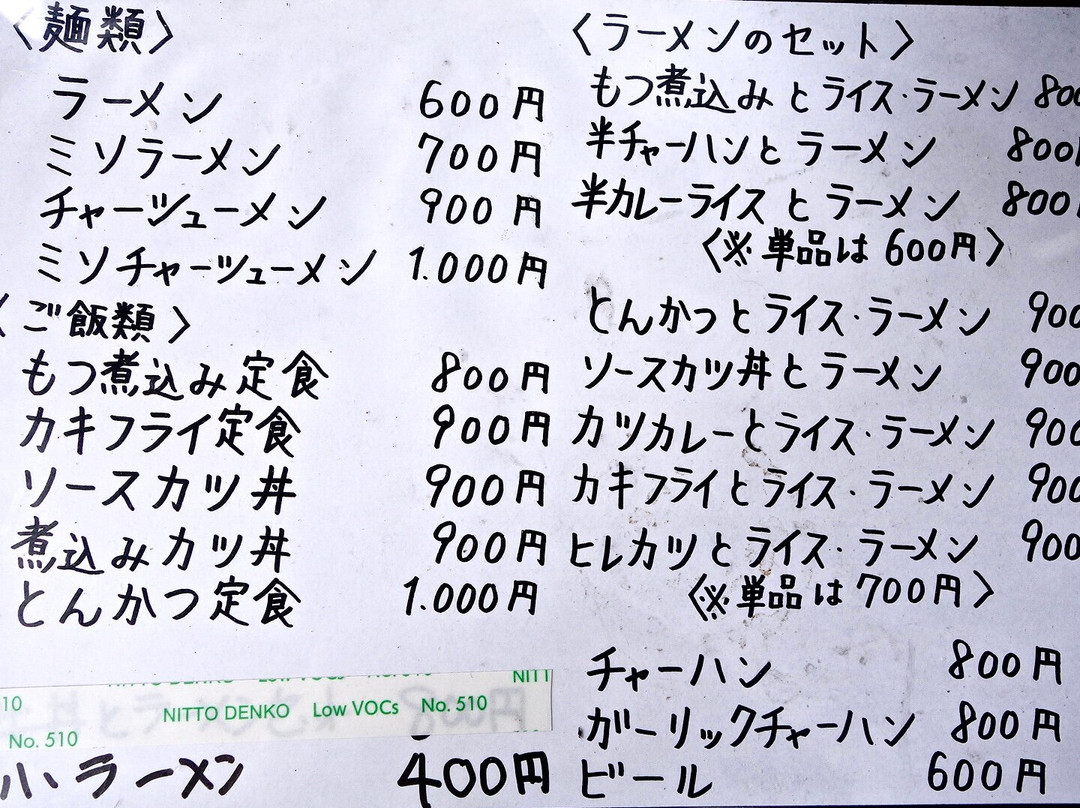 〈麺類〉
ラーメン 600円
ミソラーメン 700円
チャーシューメン 900円
ミソチャーシューメン 1.000円
〈ご飯類〉
もつ煮込み定食 800円
カキフライ定食 900円
ソースカツ丼 900円
煮込みカツ丼 900円
とんかつ定食 1.000円
NITTO DENKO Low VOCs No. 510
No. 510
ラーメン 400円
〈ラーメンのセット〉
もつ煮込みとライス・ラーメン 800
半チャーハンとラーメン 800
半カレーライスとラーメン 800
〈※単品は600円〉
とんかつとライス・ラーメン 900
ソースカツ丼とラーメン 900
カツカレーとライス・ラーメン 900
カキフライとライス・ラーメン 900
ヒレカツとライス・ラーメン 900
〈※単品は700円〉
チャーハン 800円
ガーリックチャーハン 800円
ビール 600円